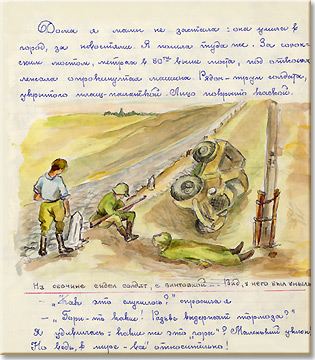 Дома я мамы не застала: она ушла в
город, за новостями. Я пошла туда же. За сорок-
ским мостом, метрах в 50ти выше моста, под откосом
лежала опрокинутая машина. Рядом – труп солдата,
укрытого плащ-палаткой. Лицо покрыто каской.
На обочине сидел солдат, с винтовкой. Вид у него был уныл
– "Как это случилось?" спросила я
– "Горы-то какие! Разве выдержат тормоза?"
Я удивилась: какие же это "горы"? Маленький уклон
Но ведь, в мире – всё относительно!